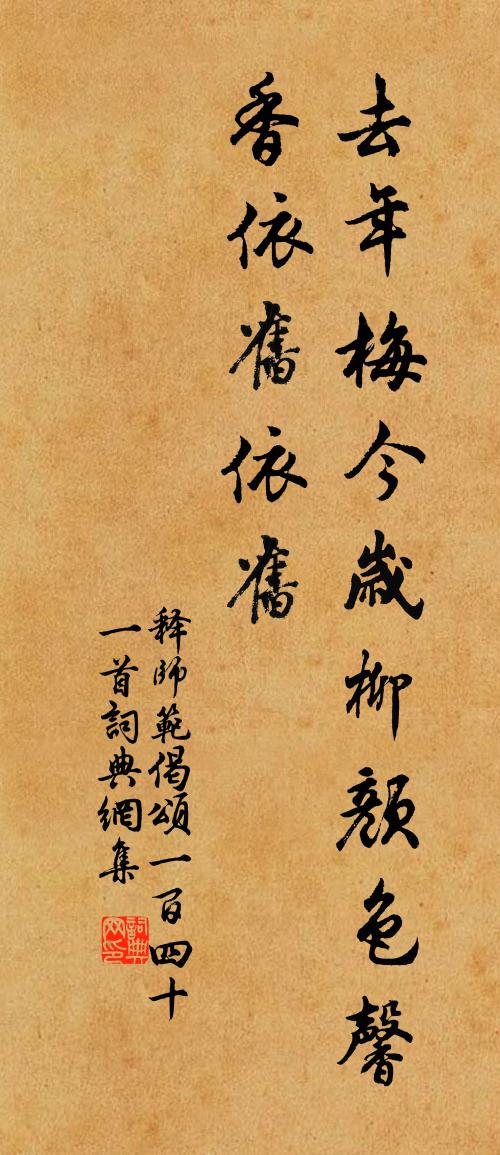 去年梅今歲柳顏色馨
香依舊依舊
釋師範偈頌一百四十
一首詞典網集
詞典网印